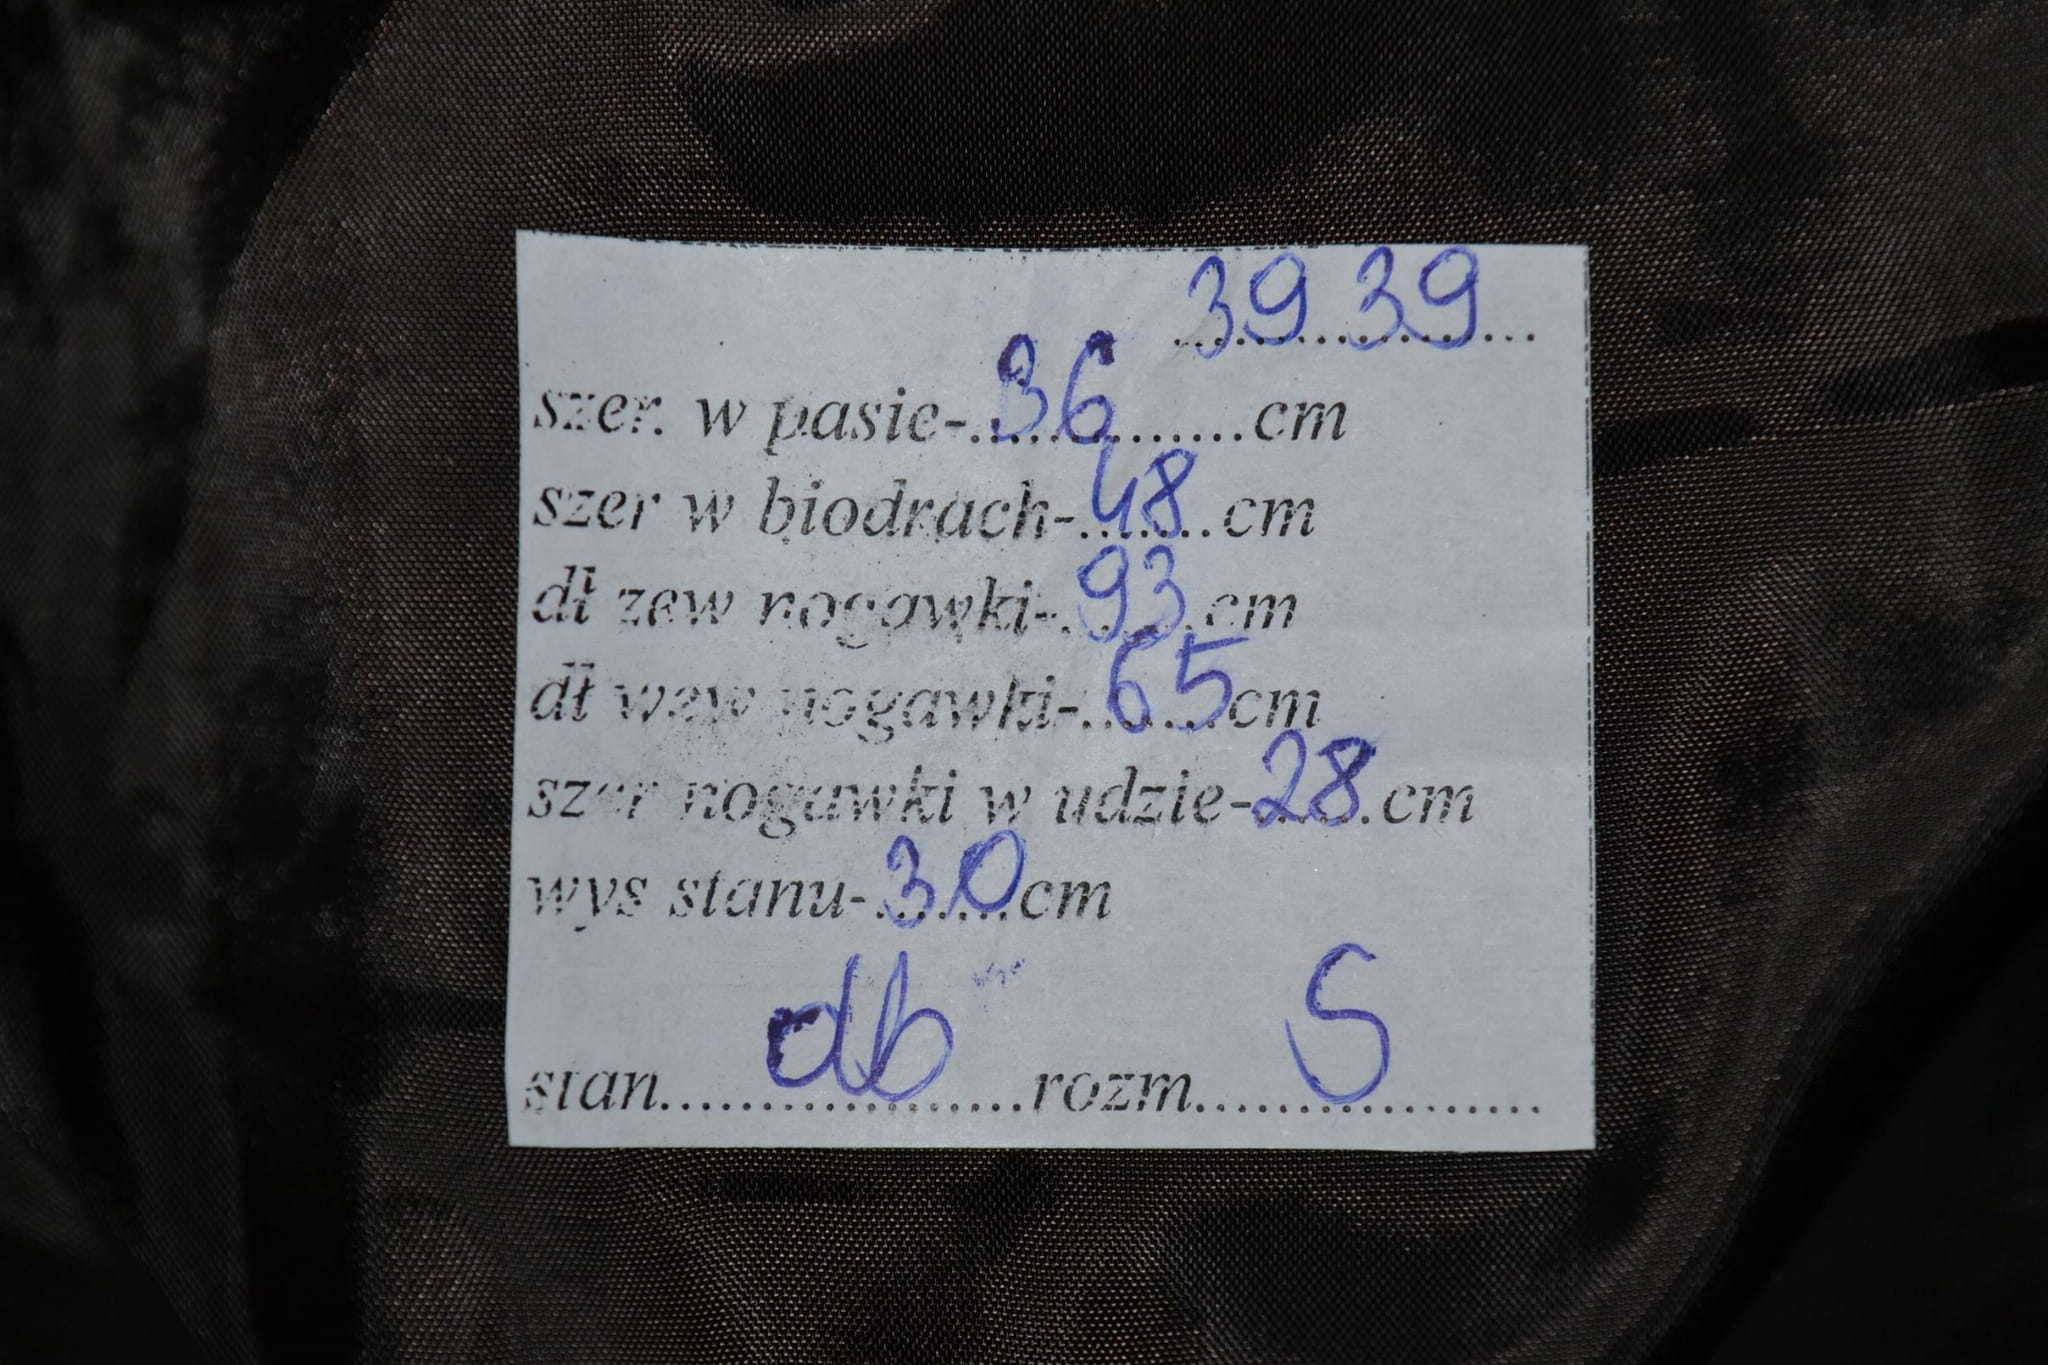 39 39
szer. w pasie-36..............cm
szer w biodrach-48.cm
dł zew nogawki-93.cm
dł wew nogawki-65cm
szer nogawki w udzie-28.cm
wys stanu-30cm
stan.......db.......rozm.......S.......